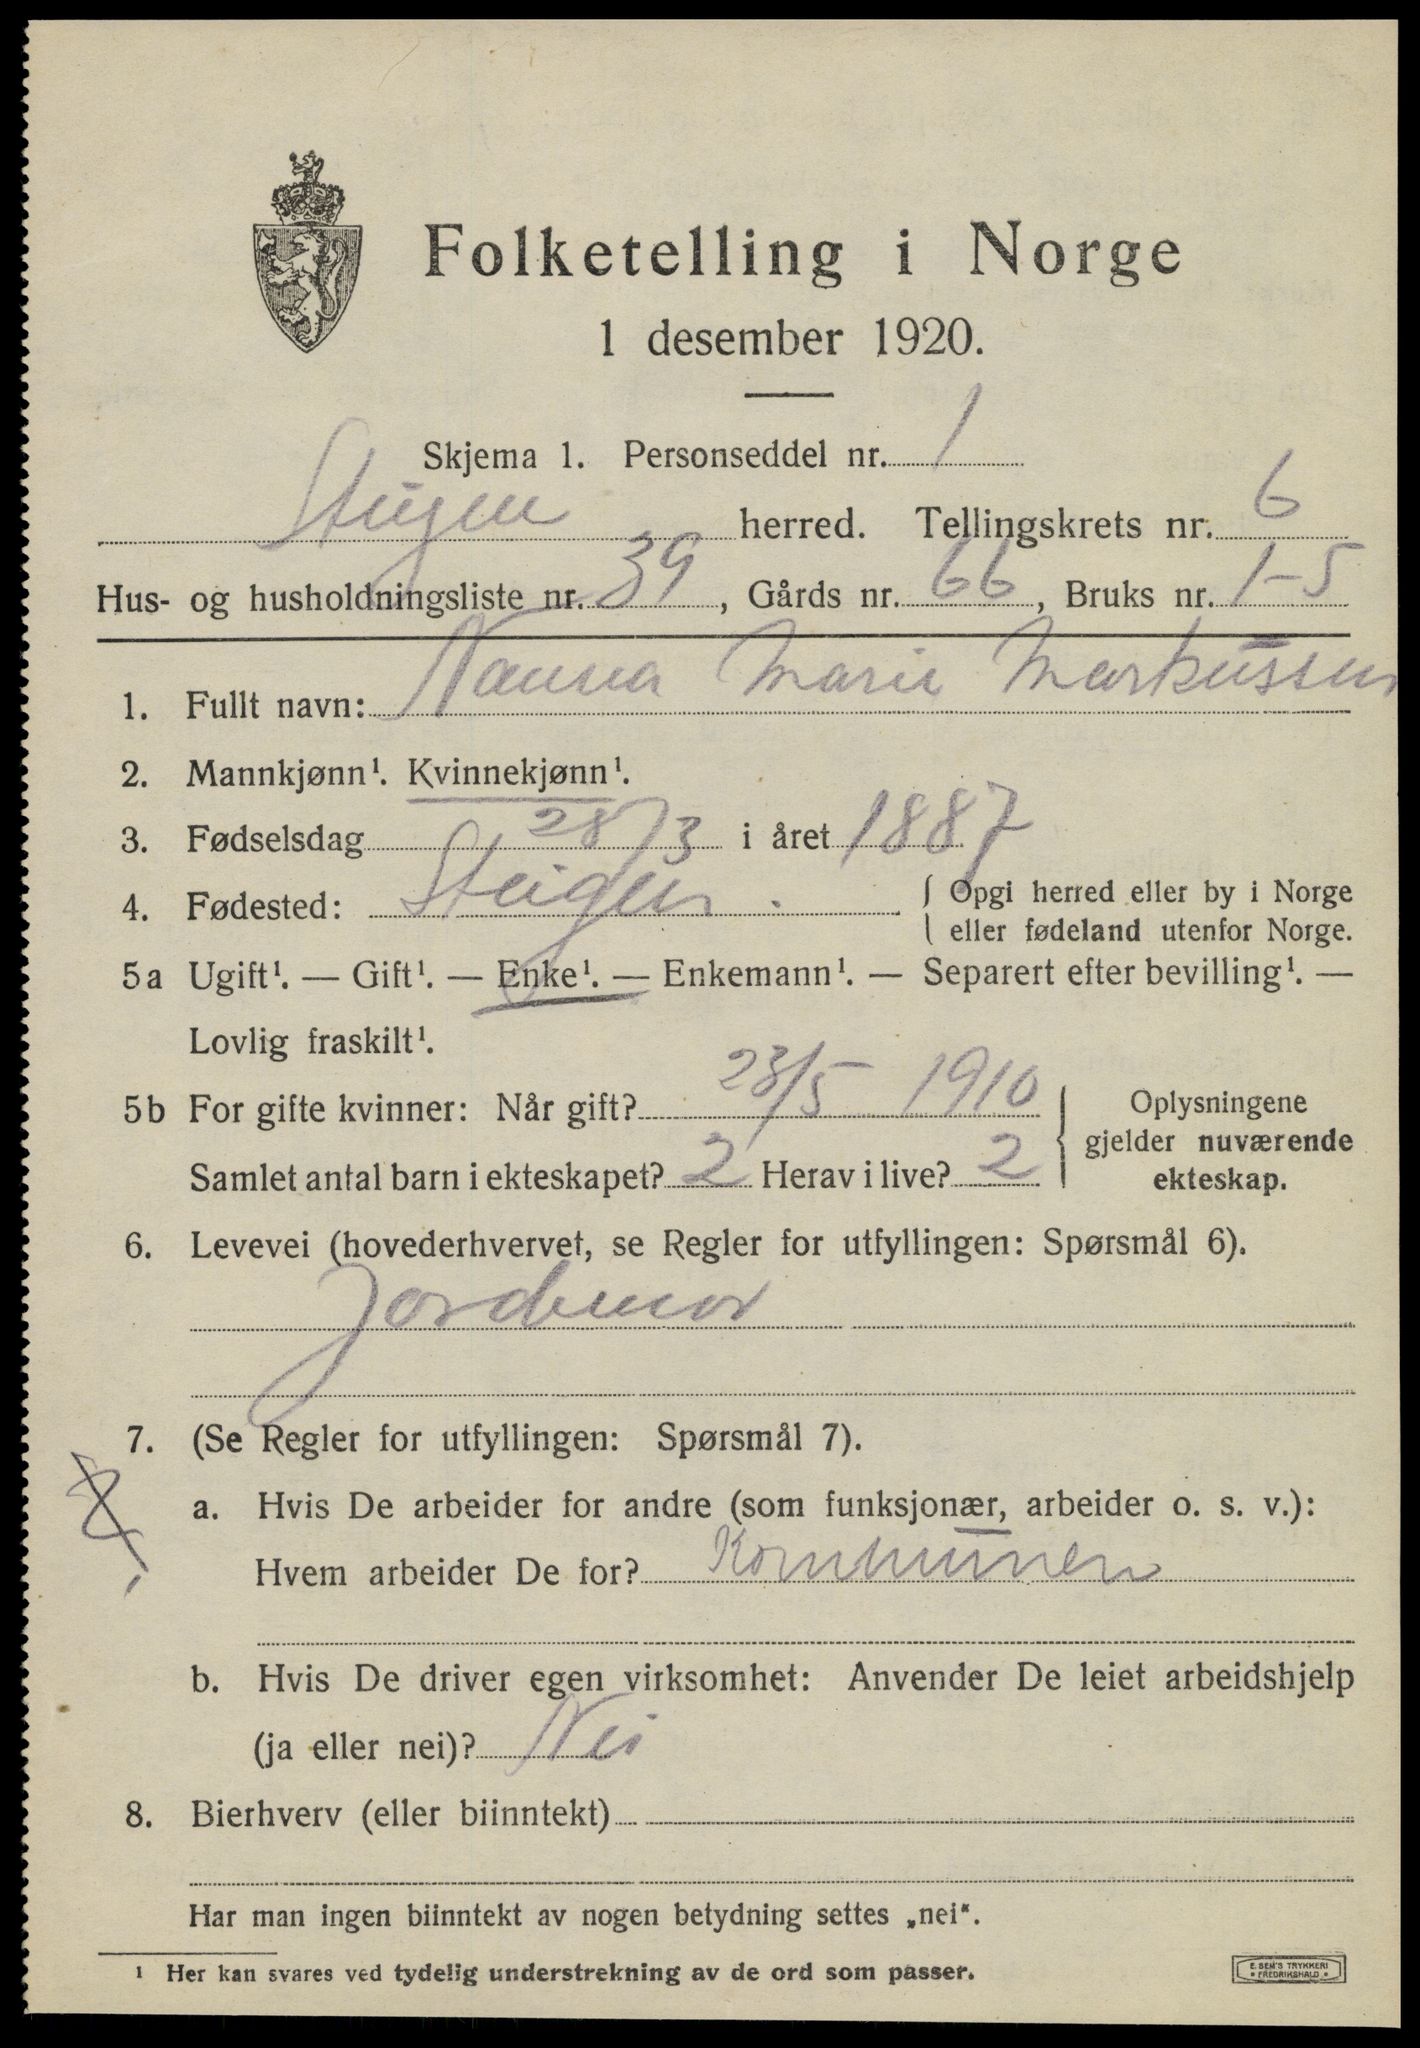 Folketelling i Norge
1 desember 1920.
Skjema 1. Personseddel nr. 1
Steigen herred. Tellingskrets nr. 6
Hus- og husholdningsliste nr. 39, Gårds nr. 66, Bruks nr. 1-5
1. Fullt navn: Nanna Marie Markussen
2. Mannkjønn¹. Kvinnekjønn¹.
3. Fødselsdag 28/3 i året 1887
4. Fødested: Steigen. { Opgi herred eller by i Norge
eller fødeland utenfor Norge.
5a Ugift¹. — Gift¹. — Enke¹. — Enkemann¹. — Separert efter bevilling¹. —
Lovlig fraskilt¹.
5b For gifte kvinner: Når gift? 23/5 1910
Samlet antal barn i ekteskapet? 2 Herav i live? 2
Oplysningene
gjelder nuværende
ekteskap.
6. Levevei (hovederhvervet, se Regler for utfyllingen: Spørsmål 6).
Jordmor
7. (Se Regler for utfyllingen: Spørsmål 7).
a. Hvis De arbeider for andre (som funksjonær, arbeider o. s. v.):
Hvem arbeider De for? Kommunen
b. Hvis De driver egen virksomhet: Anvender De leiet arbeidshjelp
(ja eller nei)? Nei
8. Bierhverv (eller biinntekt)
Har man ingen biinntekt av nogen betydning settes „nei".
¹ Her kan svares ved tydelig understrekning av de ord som passer.
E. SEM'S TRYKKERI
• FREDRIKSHALD •